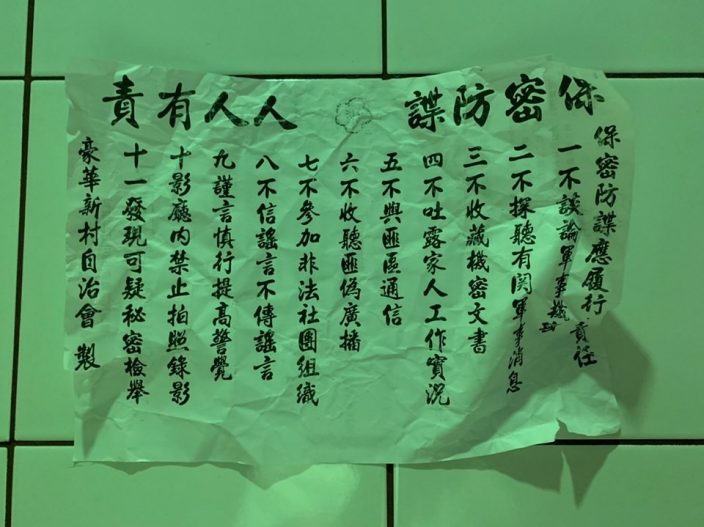 保密防諜 人人有責
保密防諜應履行責任
一不談論軍事機
二不探聽有関軍事消息
三不收藏機密文書
四不吐露家人工作實況
五不與匪區通信
六不收聽匪偽廣播
七不參加非法社團組織
八不信謠言不傳謠言
九謹言慎行提高警覺
十影廳內禁止拍照錄影
十一發現可疑秘密檢舉
豪華新村自治會 製